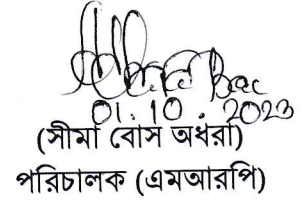 01.10.2023
(সীমা বোস অধরা)
পরিচালক (এমআরপি)